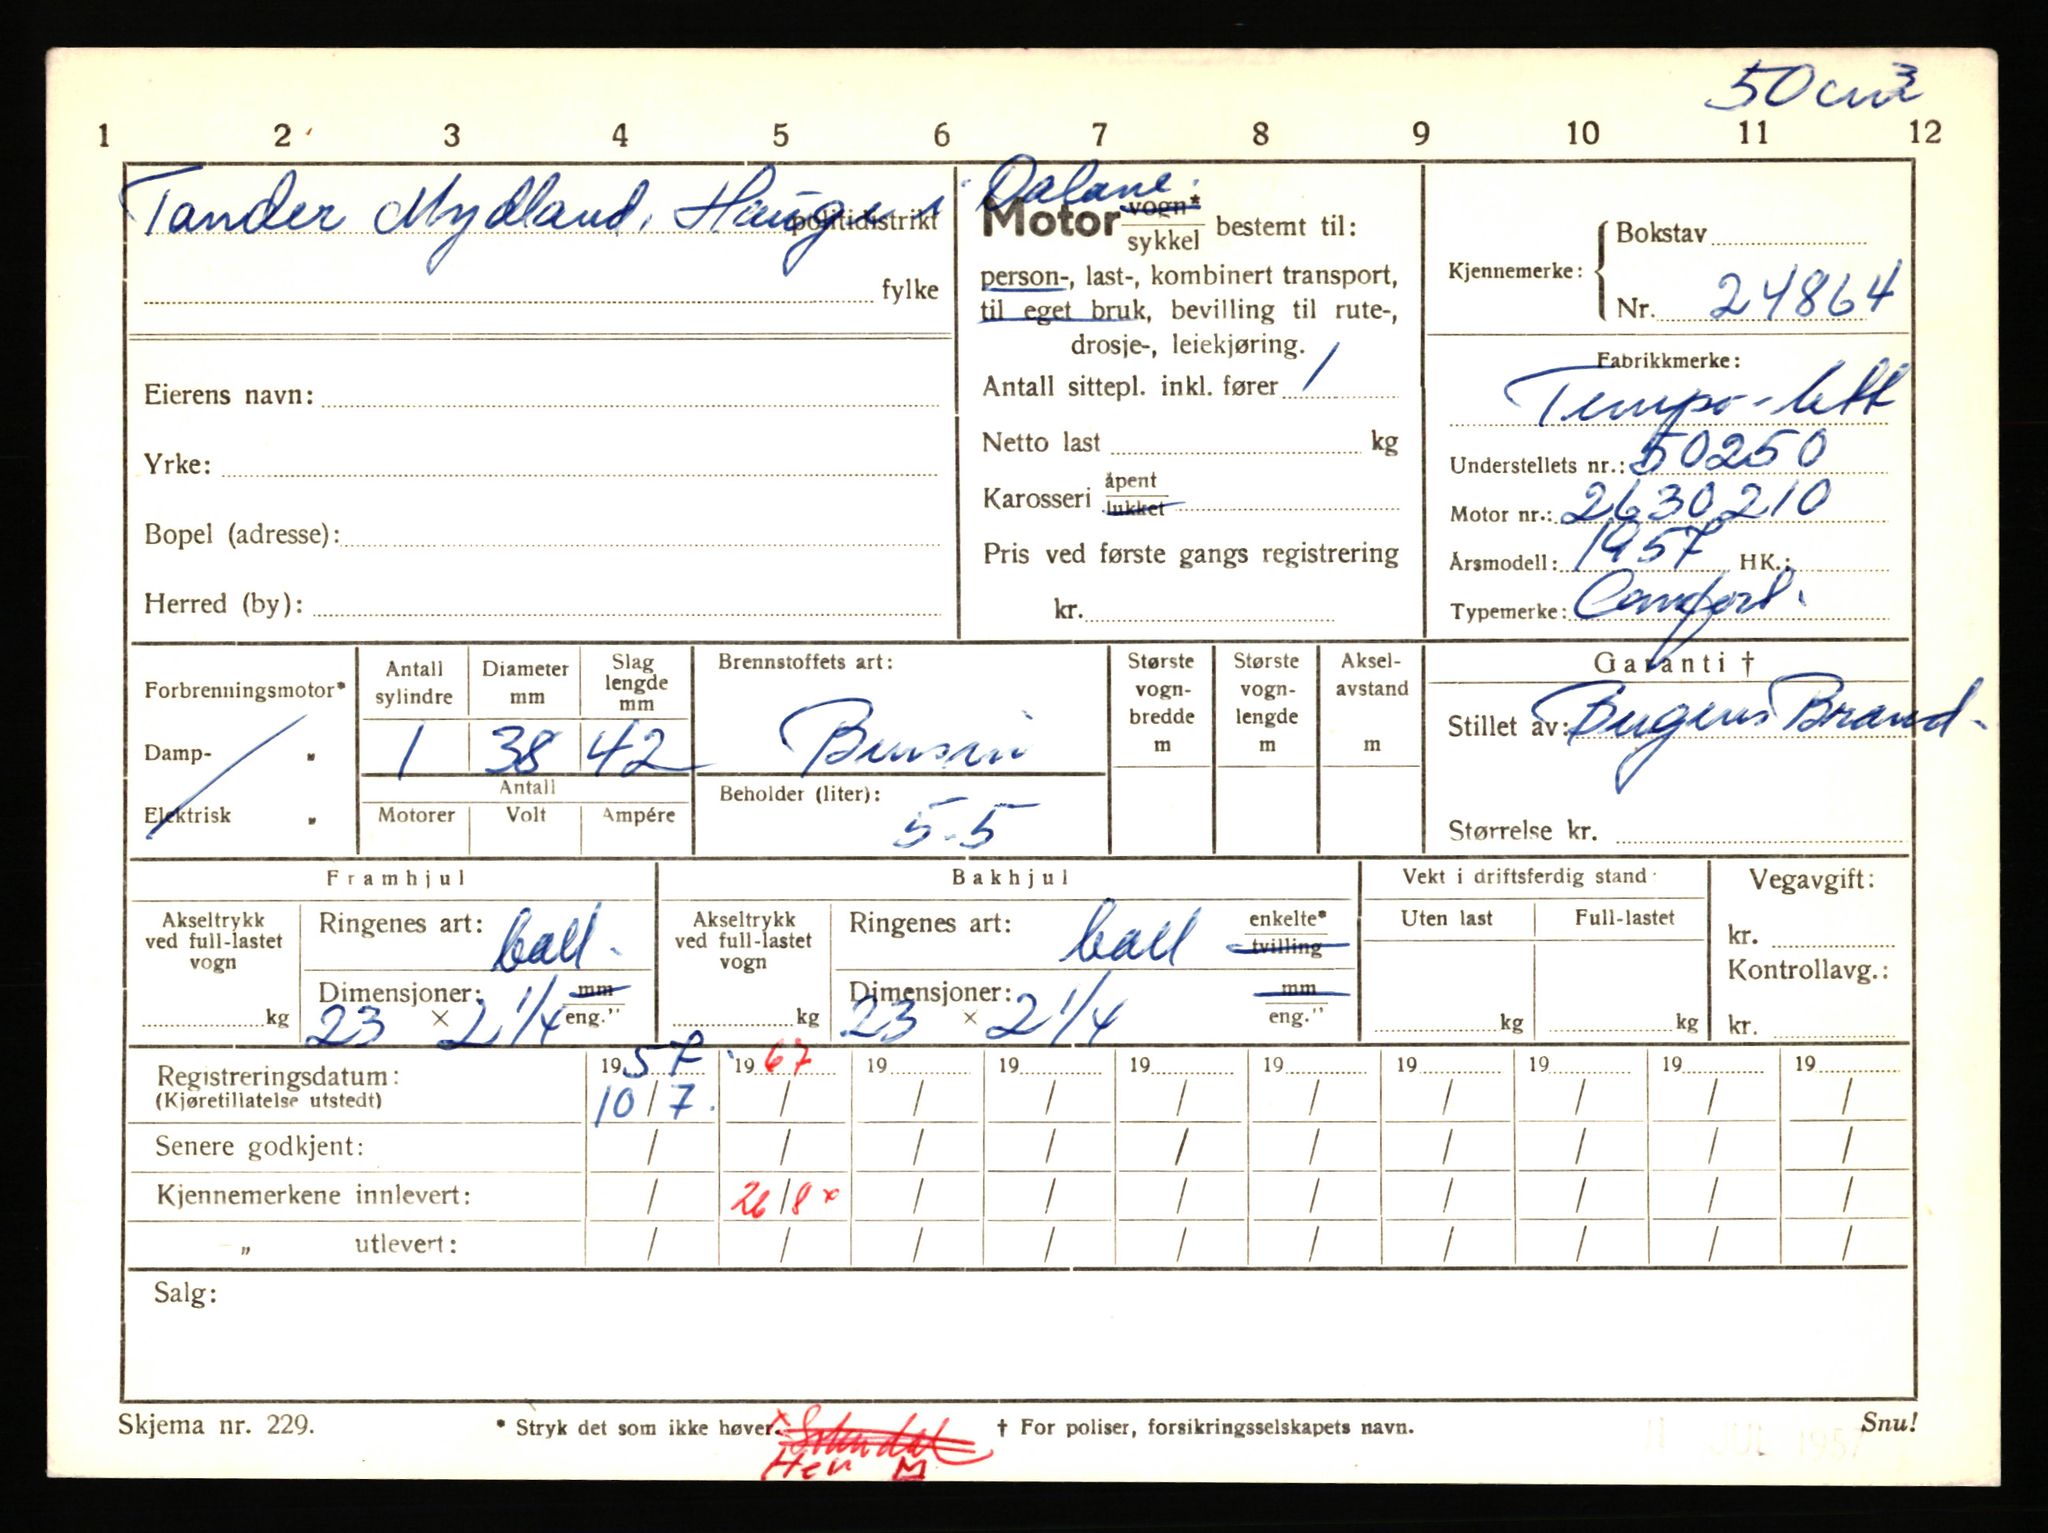 50 cm3
1 2 3 4 5 6 7 8 9 10 11 12
Tander Mydland, Haugen Dalane.
politidistrikt
fylke
Eierens navn:
Yrke:
Bopel (adresse):
Herred (by):
Motor vogn* / sykkel bestemt til:
person-, last-, kombinert transport,
til eget bruk, bevilling til rute-,
drosje-, leiekjøring.
Antall sittepl. inkl. fører 1
Netto last kg
Karosseri åpent / lukket
Pris ved første gangs registrering
kr.
Kjennemerke: Bokstav
Nr. 24864
Fabrikkmerke:
Tempo-lett
Understellets nr.: 50250
Motor nr.: 2630210
Årsmodell: 1957 HK.:
Typemerke: Comfort.
Forbrenningsmotor*
Damp- „
Elektrisk „
Antall sylindre
Diameter mm
Slag lengde mm
1 38 42
Antall
Motorer Volt Ampére
Brennstoffets art:
Bensin
Beholder (liter):
5.5
Største vogn-bredde m
Største vogn-lengde m
Aksel-avstand m
Garanti †
Stillet av: Brand-
Størrelse kr.
Framhjul
Akseltrykk ved full-lastet vogn
kg
Ringenes art: ball.
Dimensjoner: mm / eng."
23 × 2 1/4
Bakhjul
Akseltrykk ved full-lastet vogn
kg
Ringenes art: ball enkelte* / tvilling
Dimensjoner: mm / eng."
23 × 2 1/4
Vekt i driftsferdig stand
Uten last Full-lastet
kg kg
Vegavgift:
kr.
Kontrollavg.:
kr.
Registreringsdatum: 1957 1967 19 19 19 19 19 19 19 19
(Kjøretillatelse utstedt) 10/7. / / / / / / / / /
Senere godkjent: / / / / / / / / / /
Kjennemerkene innlevert: / 26/8 x / / / / / / / /
„ utlevert: / / / / / / / / / /
Salg:
Skjema nr. 229. * Stryk det som ikke høver. † For poliser, forsikringsselskapets navn. Snu!
x
11 JUL 1957